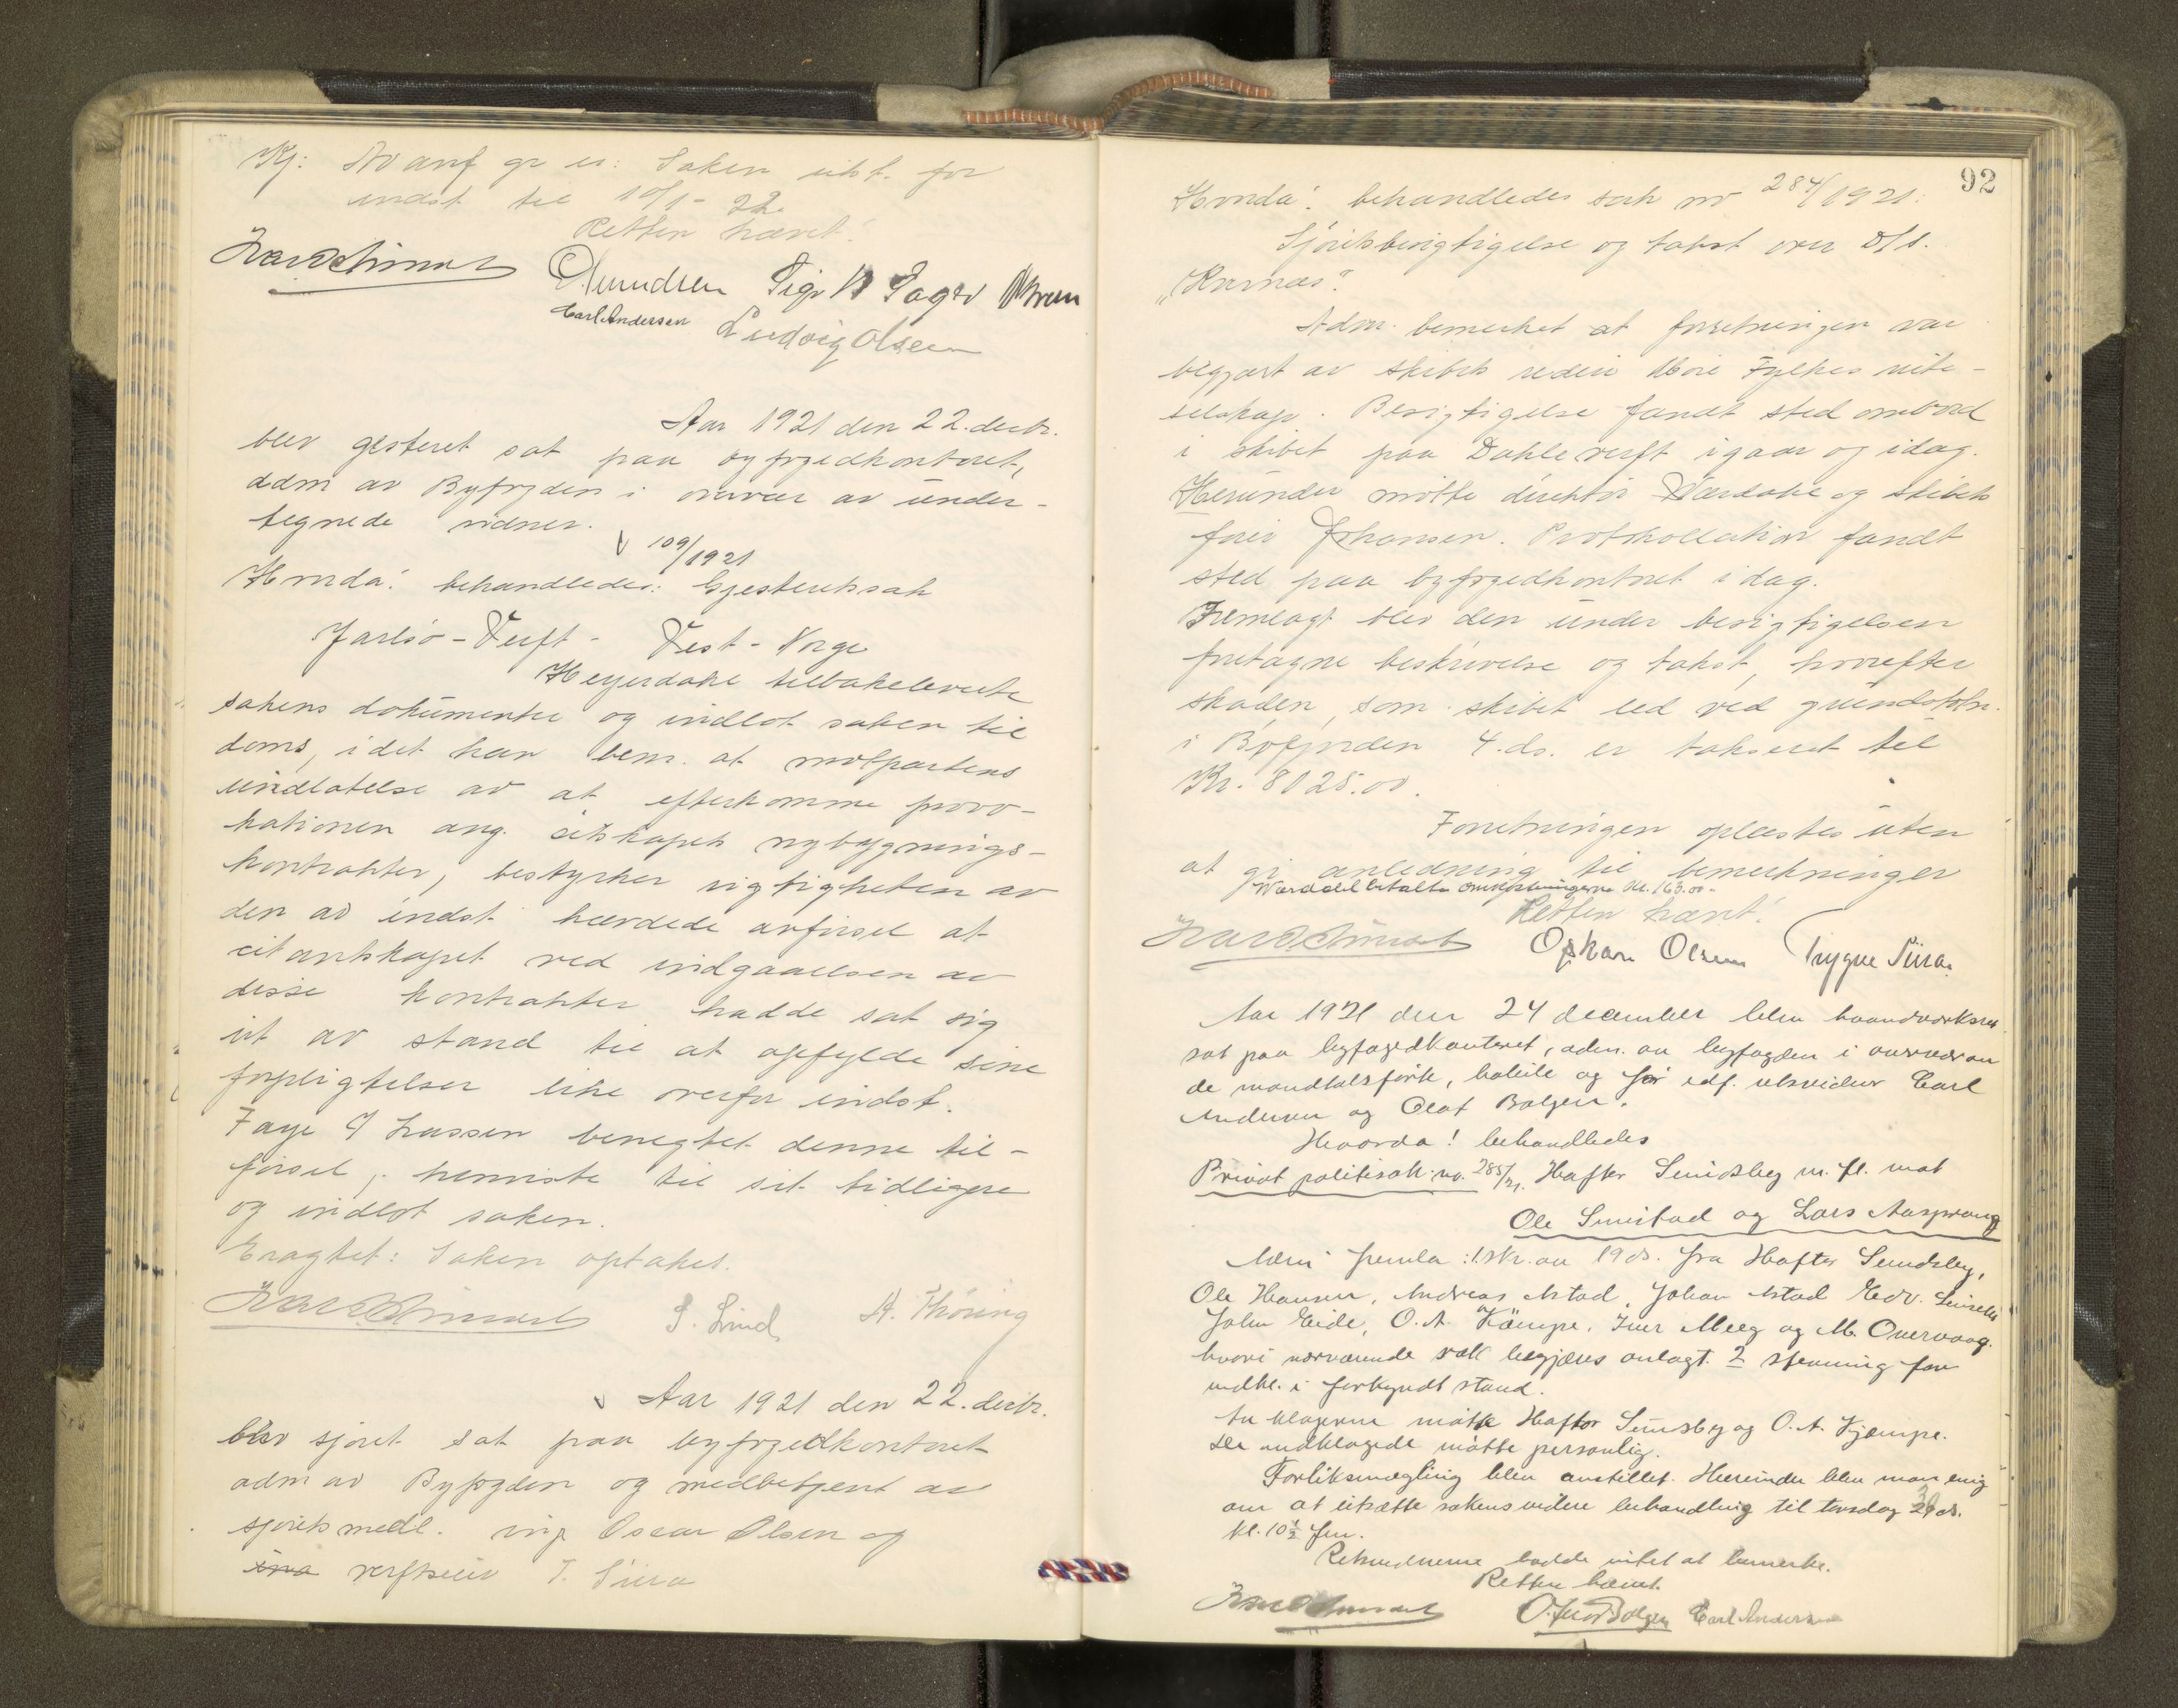 Kj: Av anf gr es: Saken uts. for
indst til 10/1-22.
Retten hævet!
Amundsen Sigv Sager
Carl Andersen Ludvig Olsen
Aar 1921 den 22. decbr.
blev gjesteret sat paa byfogedkontoret,
adm av Byfogden i overvær av under-
tegnede vidner.
109/1921
Hvorda! behandledes: Gjesteretssak
Jarlsø-Verft - Vest-Norge
Heyerdahl tilbakeleverte
sakens dokumenter og indlot saken til
doms, idet han bem. at motpartens
undlatelse av at efterkomme provo-
kationen ang. citskapets nybygnings-
kontrakter, bestyrker rigtigheten av
den av indst hævdede anførsel at
citantskapet ved indgaaelsen av
disse kontrakter hadde sat sig
ut av stand til at opfylde sine
forpligtelser like overfor indst.
Faye J Lassen benegtet denne til-
førsel, henviste til sit tidligere
og indlot saken.
Eragtet: Saken optakes.
S. Lind A. Thoring
Aar 1921 den 22. decbr.
blev sjøret sat paa byfogedkontoret
adm av Byfogden og medbetjent av
sjøretsmedl. ing Oscar Olsen og
verftseier T. Siira
92
Hvorda! behandledes sak nr 284/1921:
Sjøretsbesigtigelse og takst over D/S.
"Kårnes".
Adm. bemerket at forretningen var
begjært av skibets rederi Møre Fylkes rute-
selskap. Besigtigelse fandt sted ombord
i skibet paa Dahle verft igaar og idag.
Herunder møtte direktør Wardahl og skibets
fører Johansen. Protokollation fandt
sted paa byfogedkontoret idag.
Fremlagt blev den under besigtigelsen
foretagne beskrivelse og takst, hvorefter
skaden, som skibet led ved grundstøtn.
i Bøfjorden 4. ds. er takseret til
Kr. 8025.00.
Forretningen oplæstes uten
at gi anledning til bemerkninger
Wardahl betalte omkostningerne kr. 163.00.-
Retten hævet!
Oskar Olsen Trygve Siira
Aar 1921 den 24 december blev haandverksret
sat paa byfogedkontoret, adm. av byfogden i overvær av
de mandtalsførte, kaldte og for edf. retsvidner Carl
Andersen og Olaf Bolgen.
Hvorda! behandledes
Privat politisak nr. 285/21. Haftor Smisby m. fl. mot
Ole Smistad og Lars Aasprang
Adm: fremla: 1. skr. av 19 ds. fra Haftor Smidsby,
Ole Hansen, Andreas Astad, Johan Astad Edv.
John Eide, O. A. Kämpe, Iver Meeg og M. Overvaag.
hvori nærværende sak begjæres anlagt. 2 stevning for
indkl. i forkyndt stand.
Av klagerne møtte Haftor Smisby og O. A. Kjæmpe.
De indklagede møtte personlig.
Forliksmægling blev anstillet. Herunder blev man enig
om at utsætte sakens videre behandling til torsdag 29 ds.
kl. 10½ fm.
Retsvidnerne hadde intet at bemerke.
Retten hævet.
Olaf Bolgen Carl Andersen